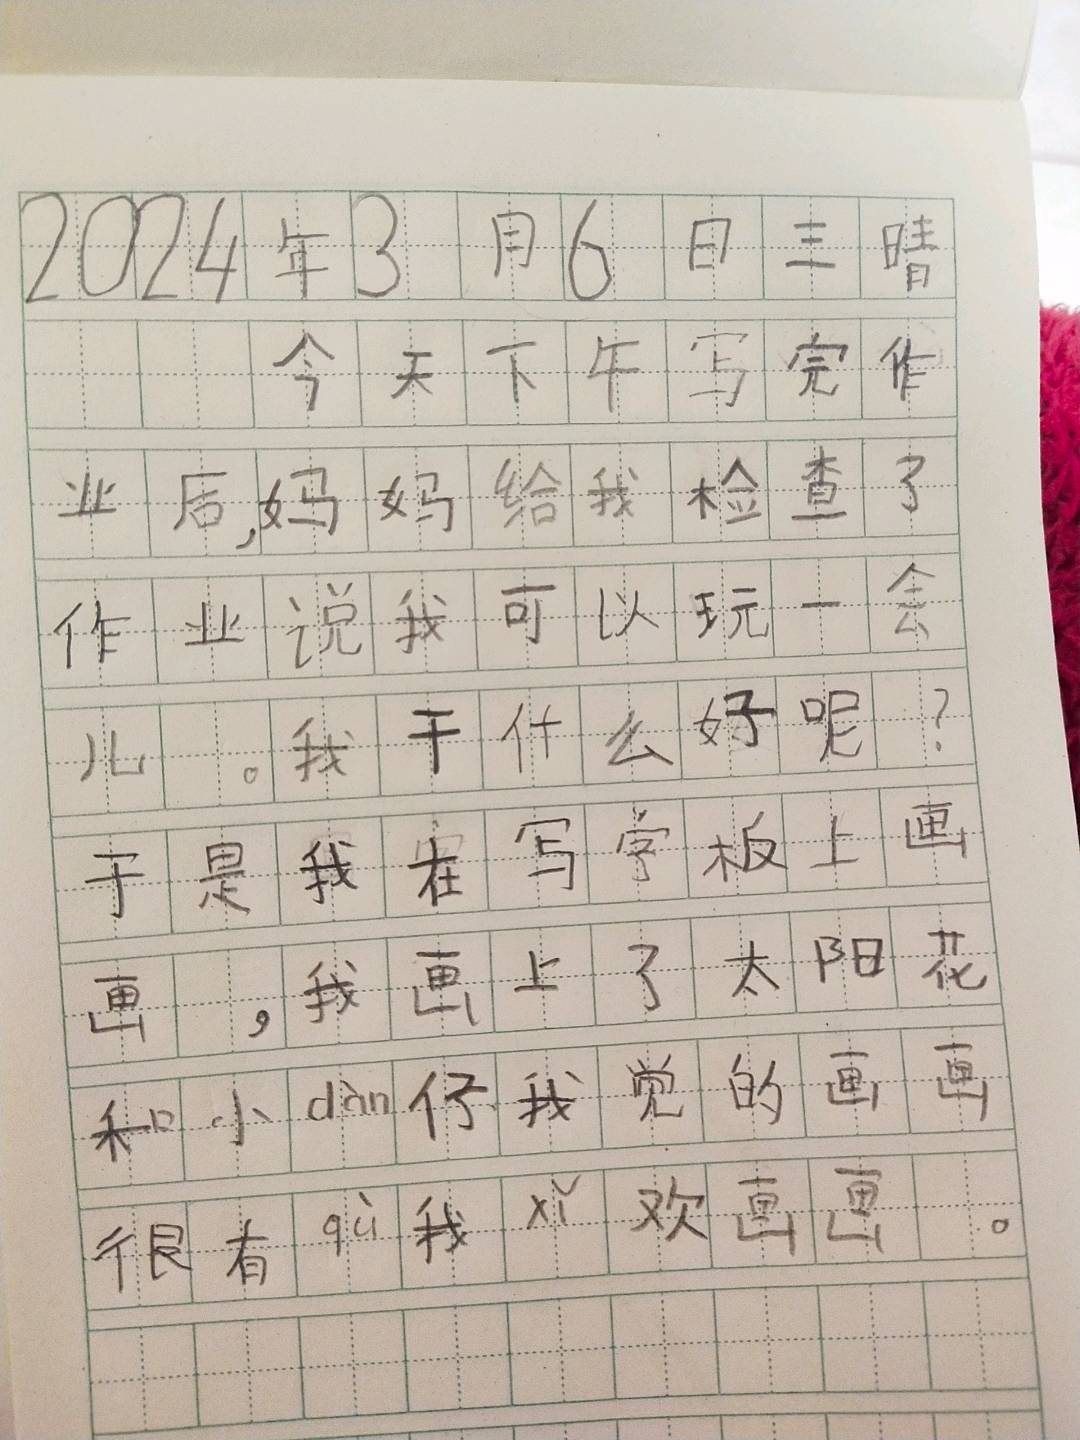 2024年3月6日三晴
今天下午写完作
业后,妈妈给我检查了
作业说我可以玩一会
儿。我干什么好呢？
于是我在写字板上画
画,我画上了太阳花
和小dàn仔我觉的画画
很有qù我xǐ欢画画。